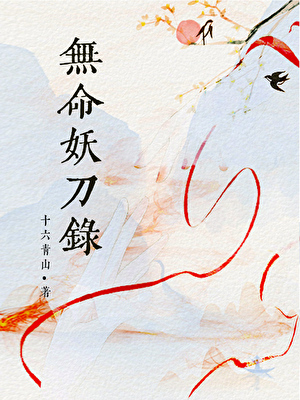 無命妖刀錄
十六青山·著